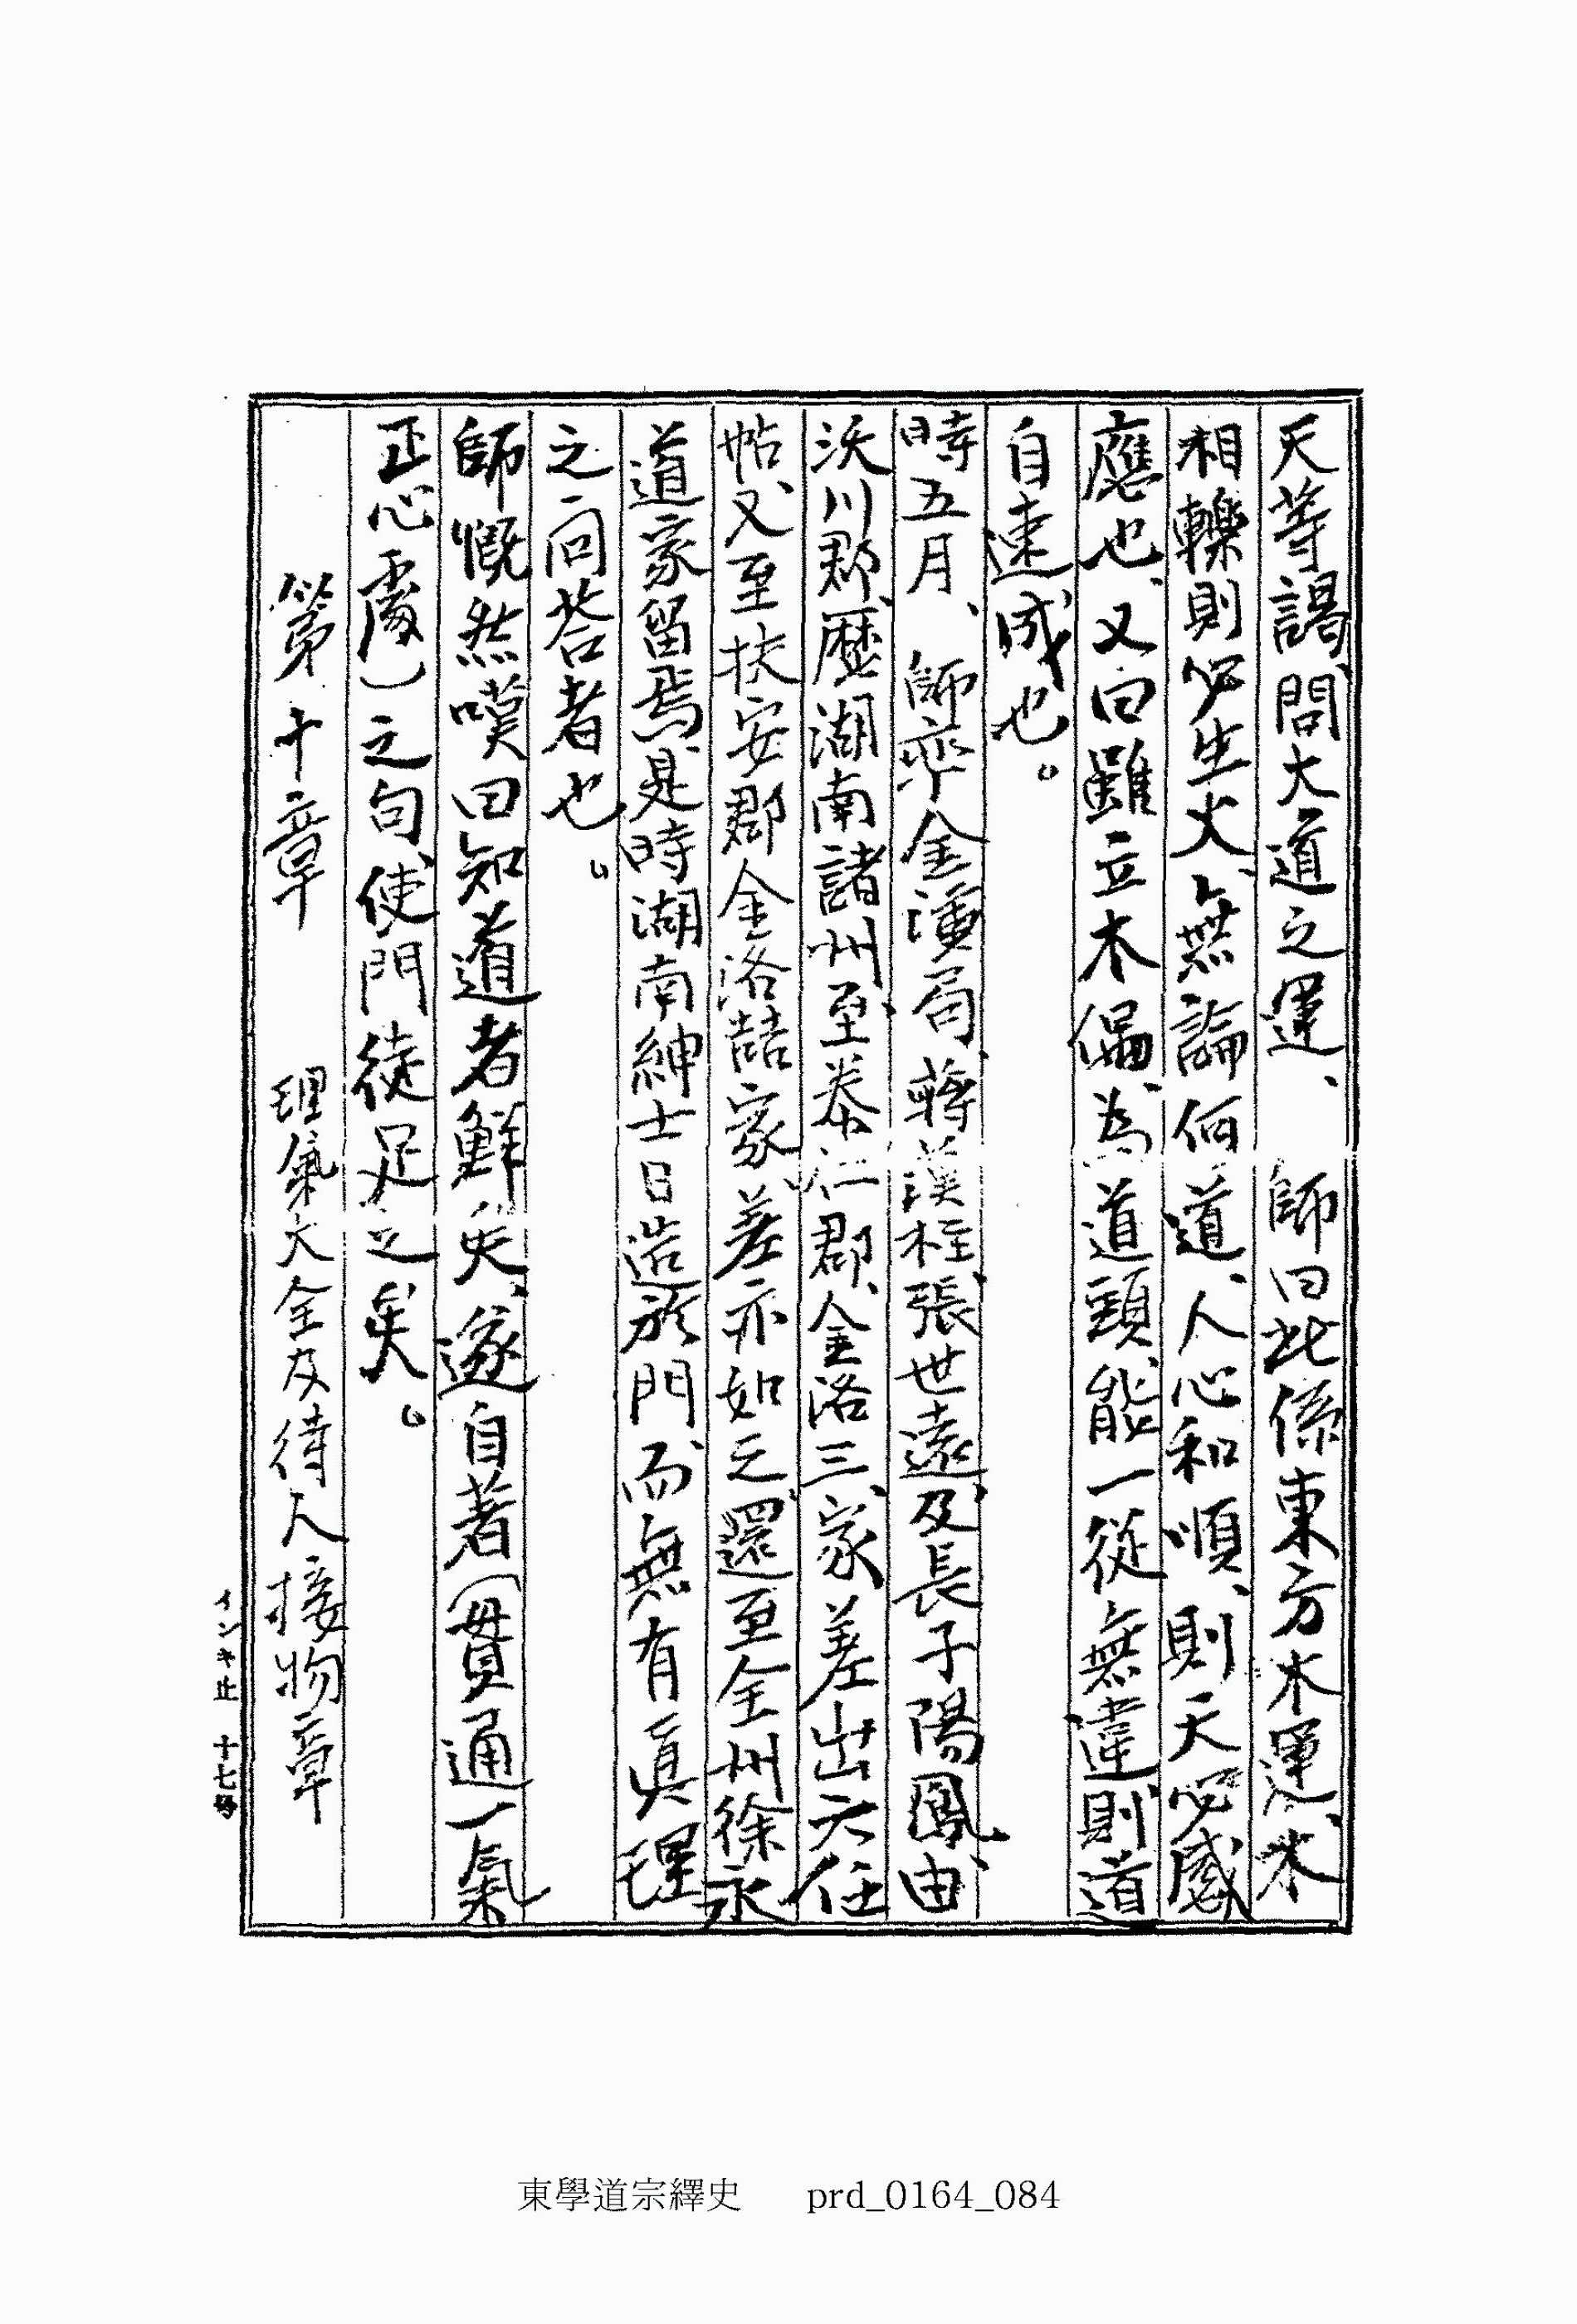 天等謁、問大道之運、　師曰此係東方木運、木
相轢則必生火、無論何道、人心和順、則天必感
應也、又曰雖立木偏、為道頭、能一從無違則道
自速成也。
時五月、　師率金演局、蔣漢柱、張世遠、及長子陽鳳、由
沃川郡、歷湖南諸州、至泰仁郡、金洛三、家、差出六任
帖、又至扶安郡金洛喆家、差亦如之、還至全州徐永
道家留焉、是時湖南紳士日造於門、而無有眞理
之问荅者也。
師慨然嘆曰知道者鮮矣、遂自著(貫通一氣
正心處)之句、使門徒足之矣。
第十章　理氣大全及待人接物章
インキ止 十七号
東學道宗繹史　prd_0164_084